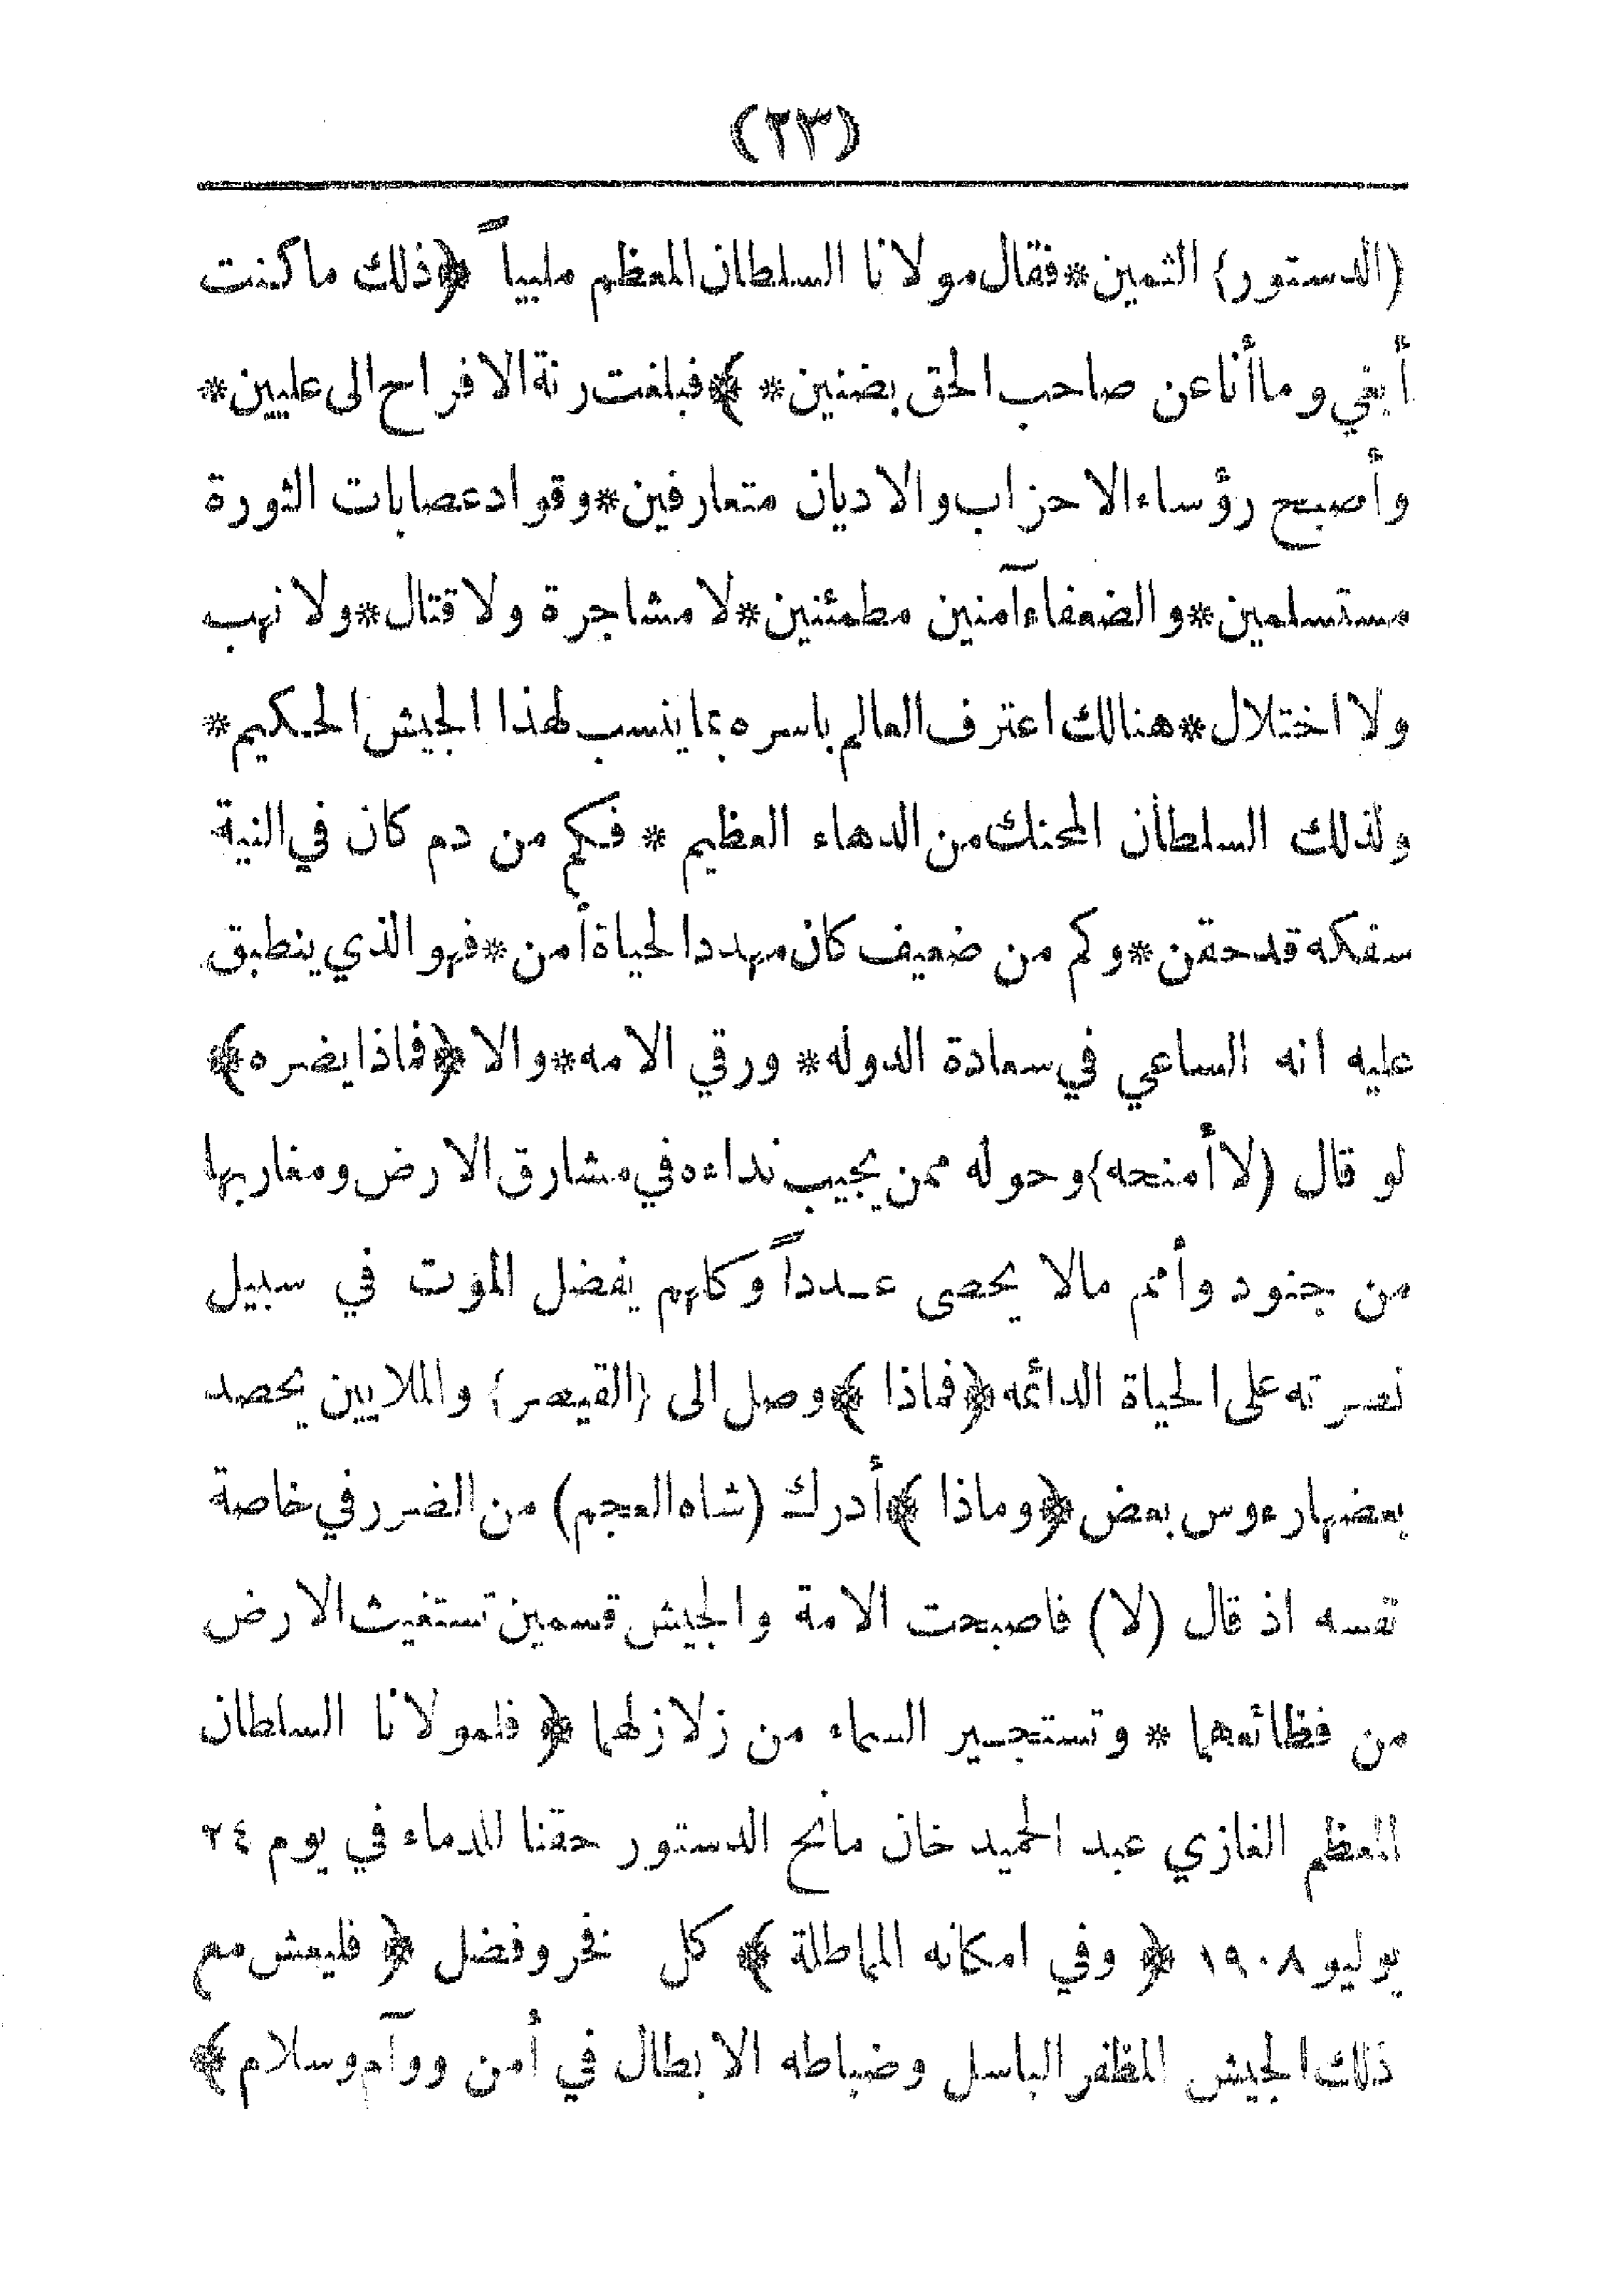 (٢٣)
(الدستور) الثمين*فقال مولانا السلطان المعظم ملبياً ﴿ذلك ما كنت
أبغي وما أنا عن صاحب الحق بضنين* ﴾فبلغت رنة الافراح الى عليين*
وأصبح رؤساء الاحزاب والاديان متعارفين*وقواد عصابات الثورة
مستسلمين*والضعفاء آمنين مطمئنين*لا مشاجرة ولا قتال*ولا نهب
ولا اختلال*هنالك اعترف العالم باسره بما ينسب لهذا الجيش الحكيم*
ولذلك السلطان المحنك من الدهاء العظيم * فكم من دم كان في النية
سفكه قد حقن*وكم من ضعيف كان مهددا لحياة أمن*فهو الذي ينطبق
عليه انه الساعي في سعادة الدوله* ورقي الامه*والا ﴿فماذا يضره﴾
لو قال (لا أمنحه) وحوله ممن يجيب نداءه في مشارق الارض ومغاربها
من جنود وأمم مالا يحصى عدداً وكلهم يفضل الموت في سبيل
نصرته على الحياة الدائمه ﴿فماذا ﴾ وصل الى (القيصر) والملايين يحصد
بعضها رءوس بعض ﴿وماذا ﴾ أدرك (شاه العجم) من الضرر في خاصة
نفسه اذ قال (لا) فاصبحت الامة والجيش قسمين تستغيث الارض
من فظائعهما * وتستجير السماء من زلازلهما ﴿ فلمولانا السلطان
المعظم الغازي عبد الحميد خان مانح الدستور حقنا للدماء في يوم ٢٤
يوليو ١٩٠٨ ﴿ وفي امكانه المماطلة ﴾ كل فخر وفضل ﴿ فليعش مع
ذلك الجيش المظفر الباسل وضباطه الابطال في أمن ووآم وسلام ﴾